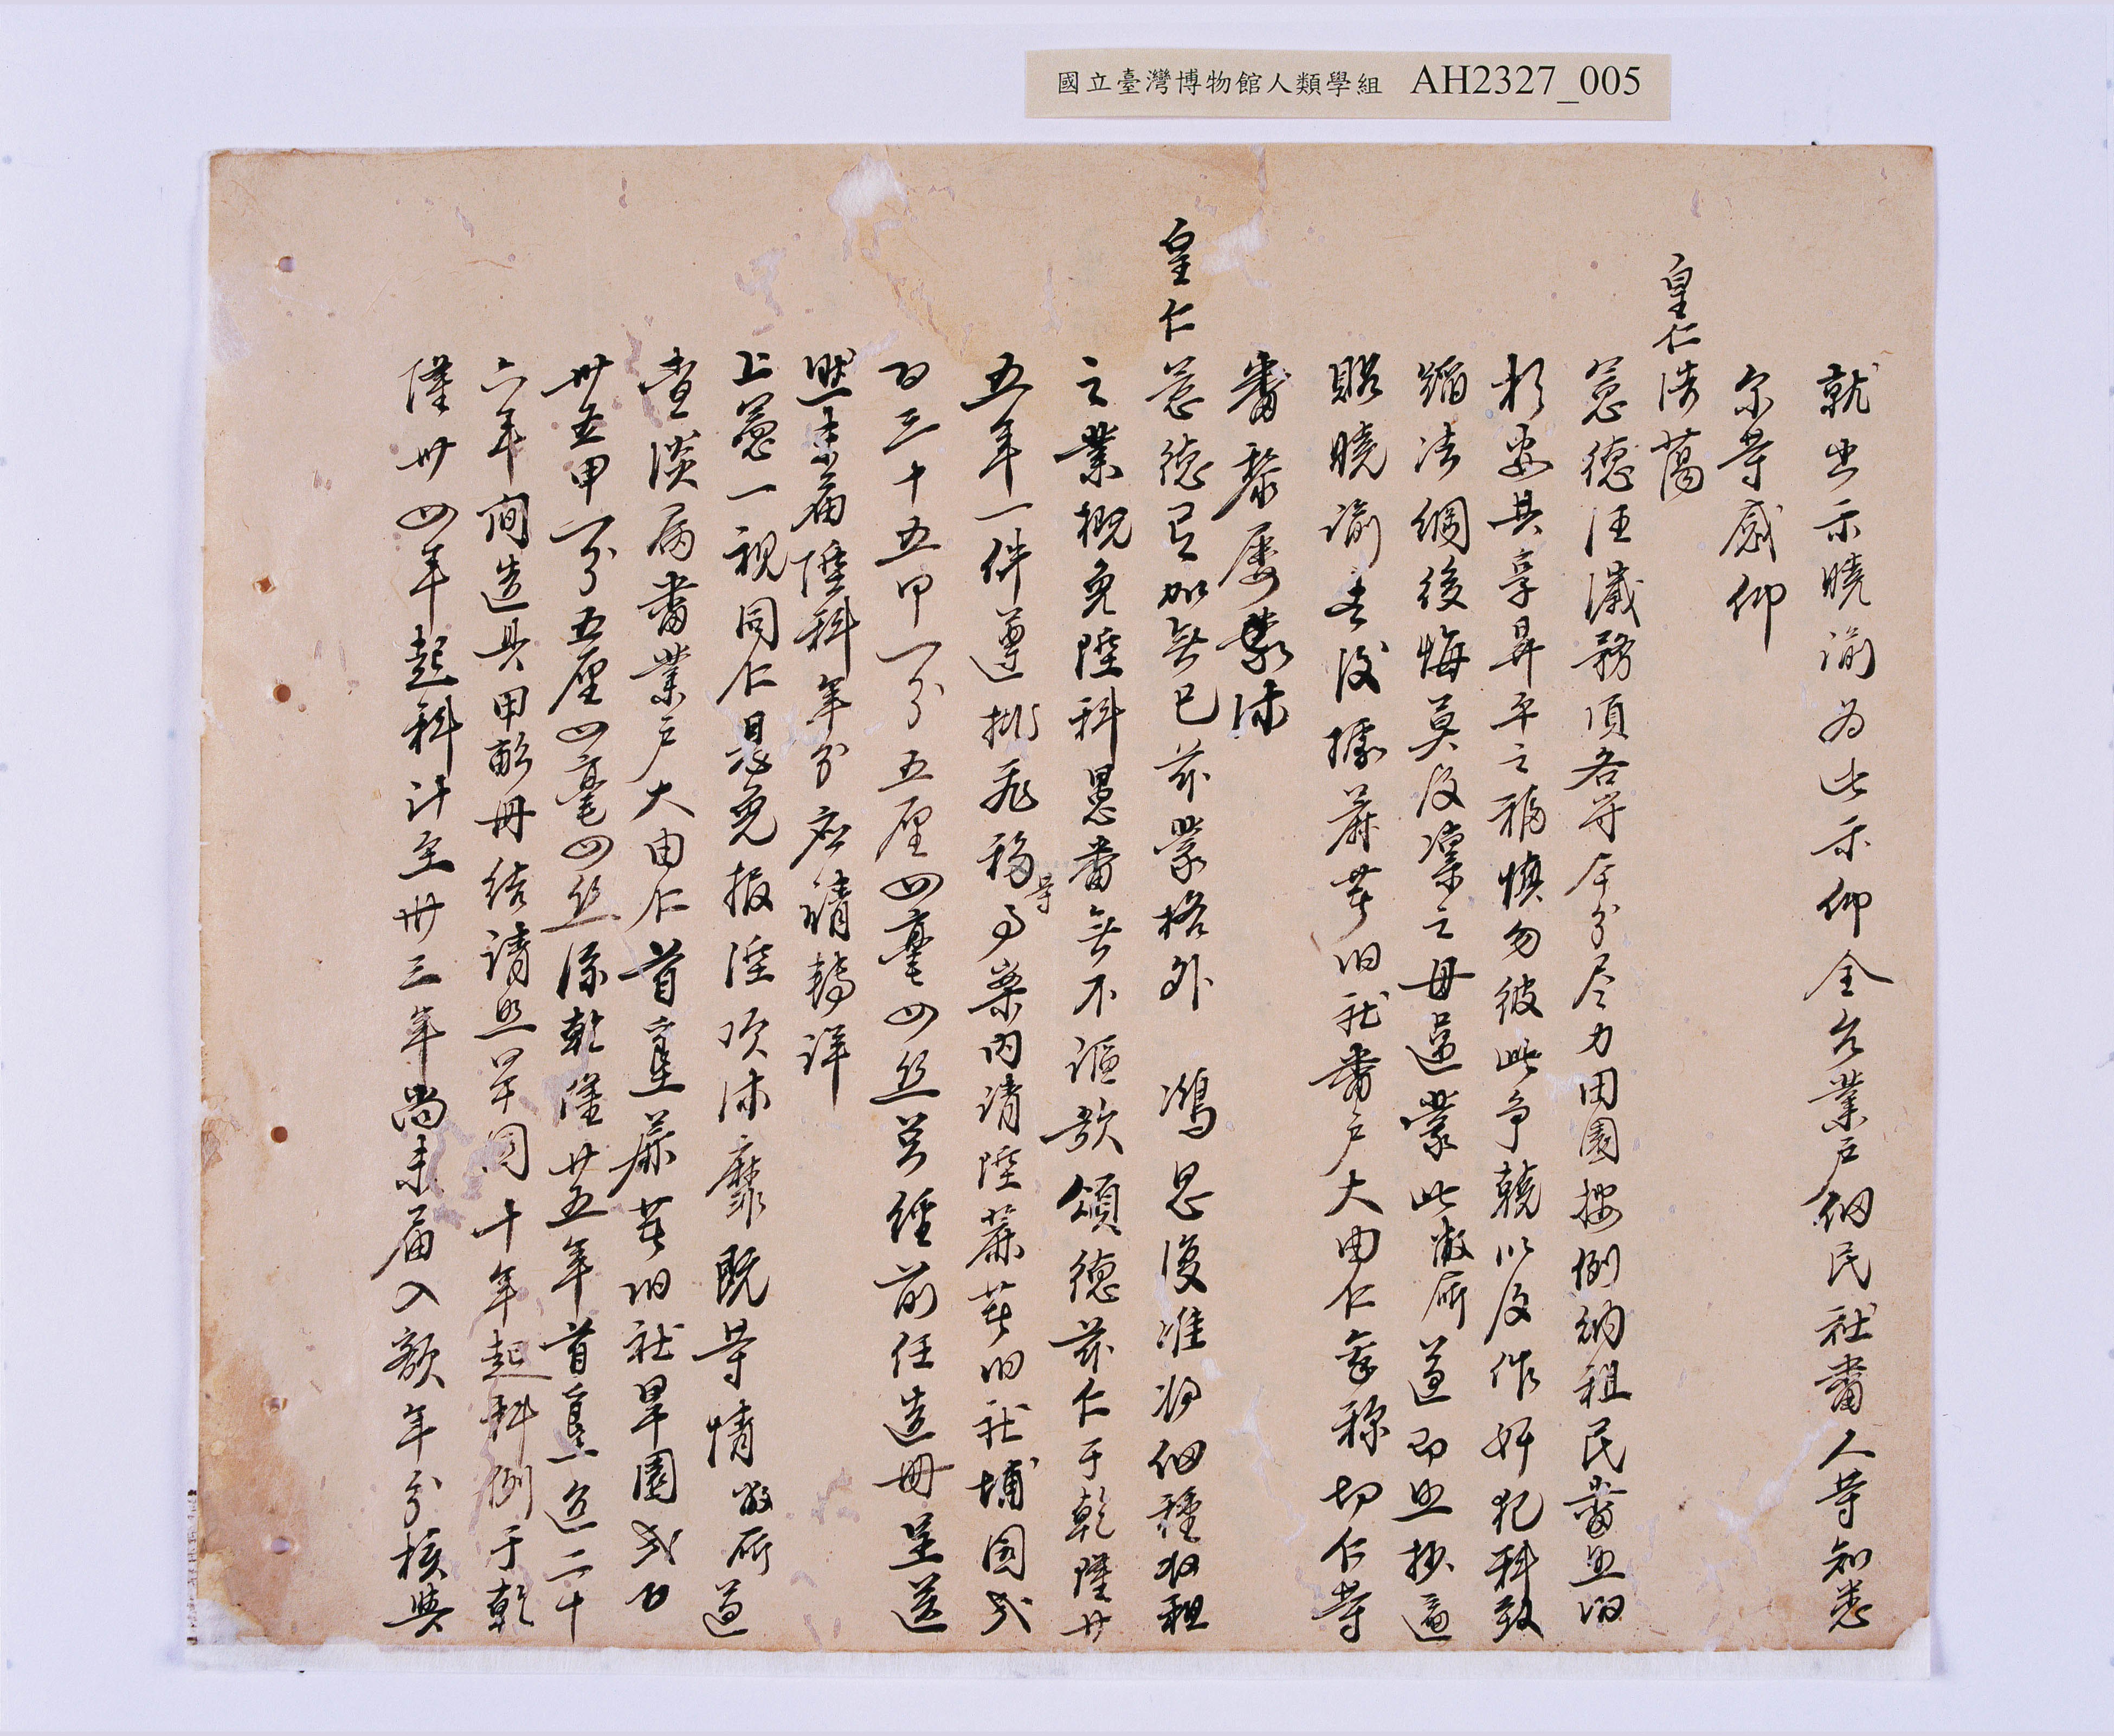 國立臺灣博物館人類學組 AH2327_005
就出示曉諭為此示仰全台業戶佃民社番人等知悉
尔等感仰
皇仁浩蕩
慈德汪濊務須各守本分尽力田園按例納租民番照旧
相安共享昇平之福慎勿彼此爭競以及作奸犯科致
蹈法網後悔莫及凜之毋違蒙此敝所遵即照抄遍
貼曉諭去後據蔴荳旧社番戶大由仁等稱切仁等
番黎屢蒙沐
皇仁慈德已加無已茲蒙格外 鴻恩復准將佃種收租
之業概免陞科愚番無不謳歌頌德茲仁于乾隆廿
五年一件遵批飛移等事案內請陞蔴荳旧社埔園弍
百三十五甲一分五厘四毫四丝業經前任造冊呈送
然未届陞科年分应請轉詳
上憲一視同仁恩免报陞頂沐靡既等情敝所遵
查淡属番業戶大由仁首垦蔴荳旧社旱園弍百
卅五甲一分五厘四毫四丝係乾隆廿五年首垦迄二十
六年間造具甲畝冊結請照旱園十年起科例于乾
隆卅四年起科計至卅三年尚未届入额年分核與